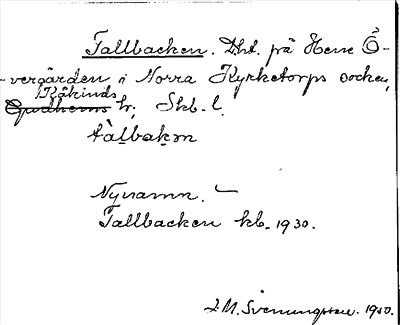 Tallbacken. Lht. på Hene Ö-
vergården i Norra Kyrketorps socken,
Kåkinds
Gudhems hr; Skb. l.
tàlbakɱ
Nynamn. –
Tallbacken kb. 1930.
L.M. Svenungsson. 1950.